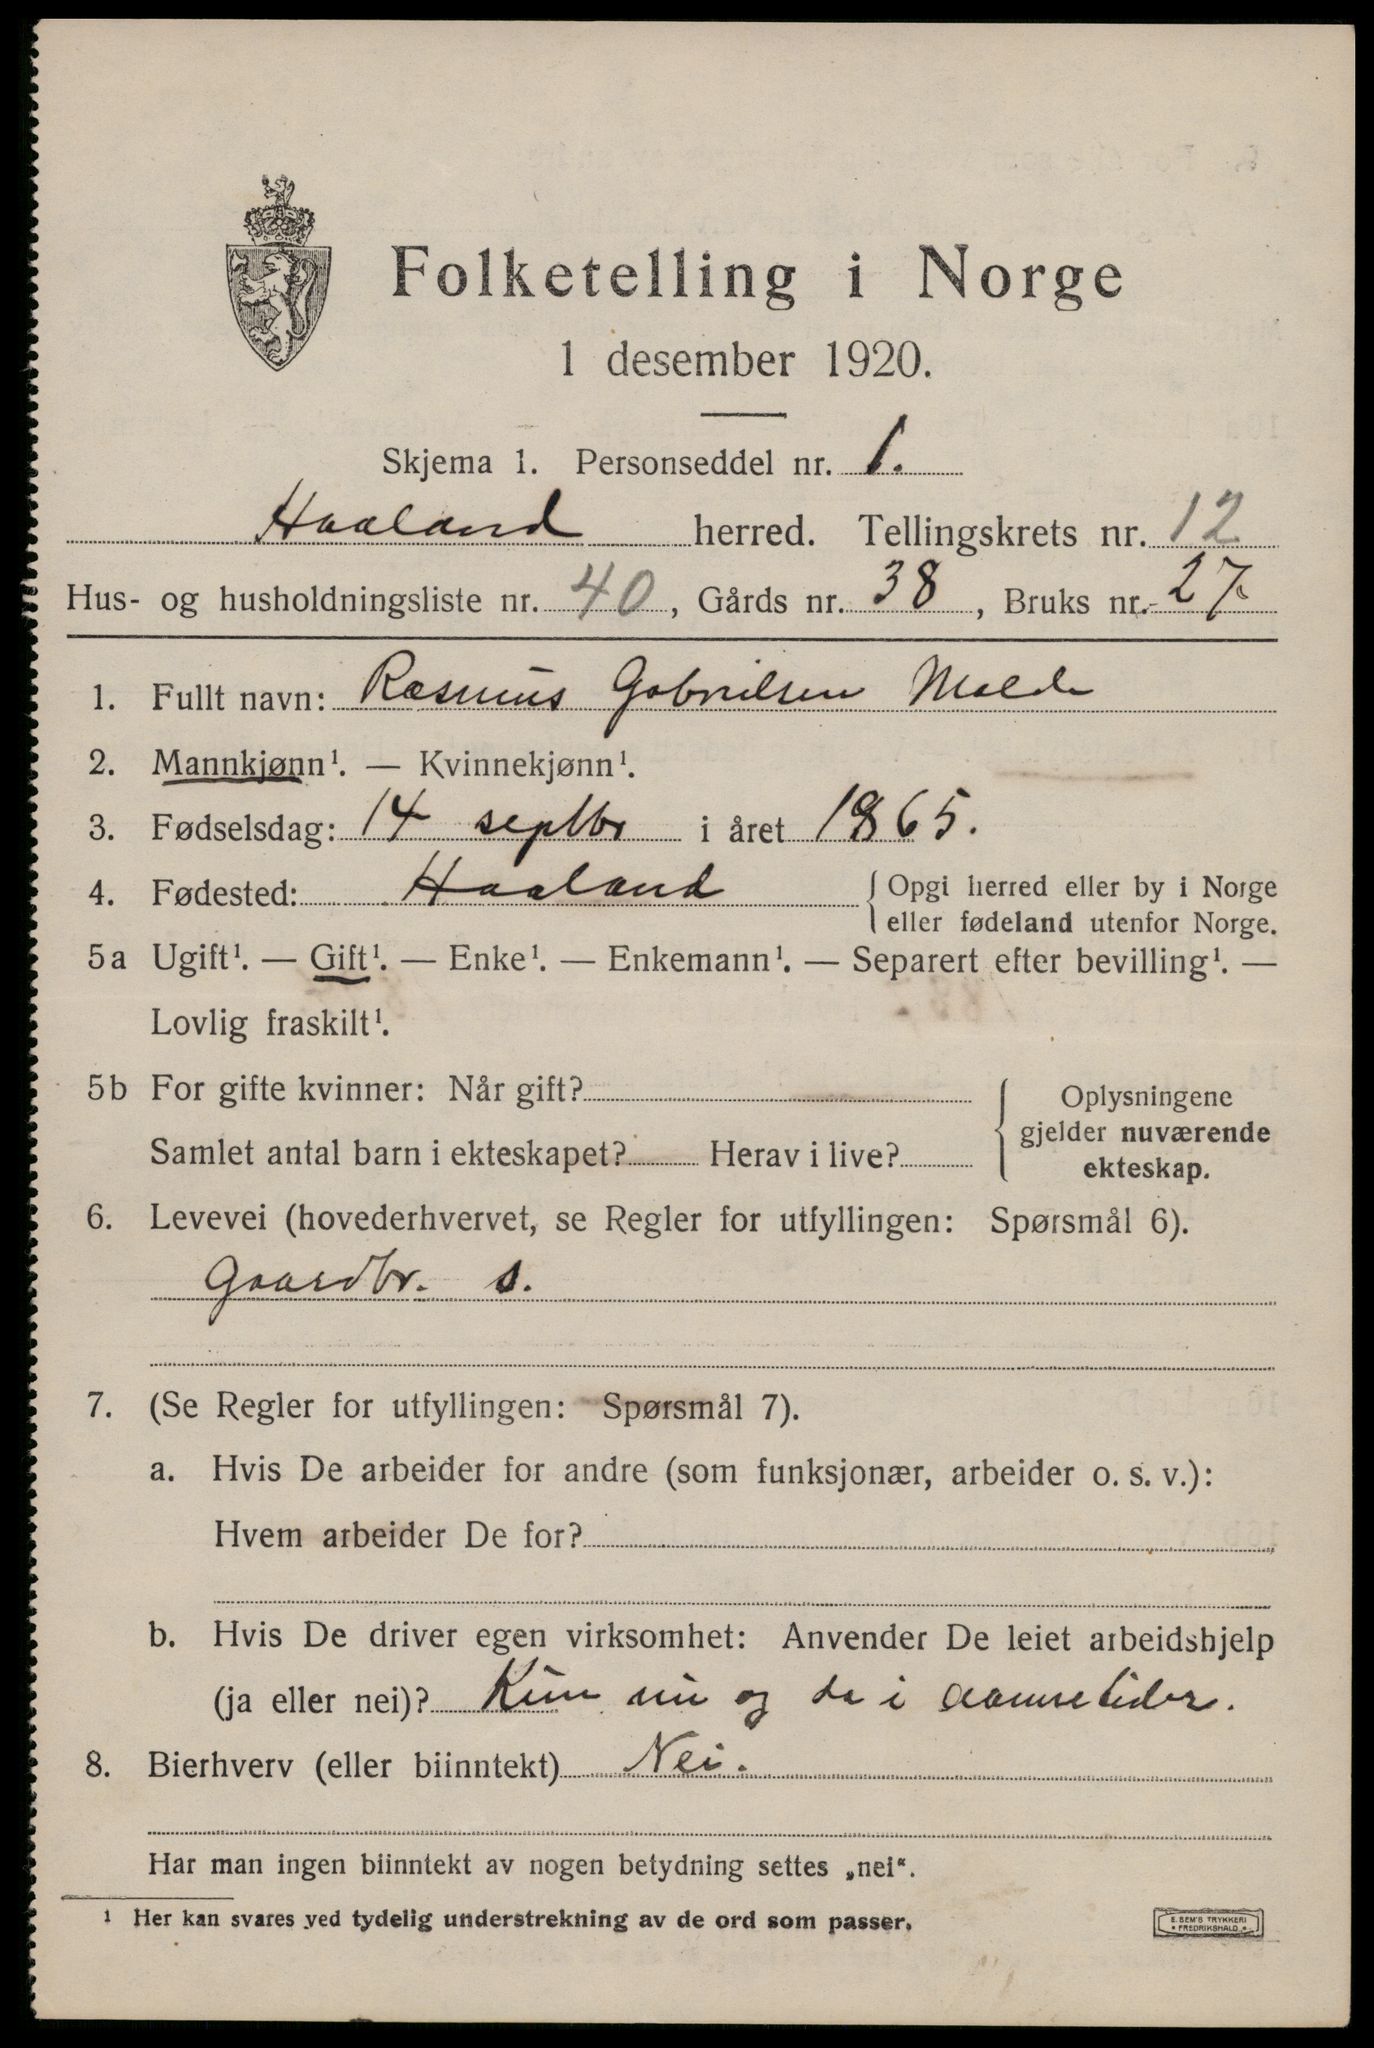 Folketelling i Norge
1 desember 1920.
Skjema 1. Personseddel nr. 1.
Haaland herred. Tellingskrets nr. 12
Hus- og husholdningsliste nr. 40, Gårds nr. 38, Bruks nr. 27
1. Fullt navn: Rasmus Gabrielsen Malde
2. Mannkjønn¹. — Kvinnekjønn¹.
3. Fødselsdag: 14 septbr i året 1865.
4. Fødested: Haaland { Opgi herred eller by i Norge
eller fødeland utenfor Norge.
5a Ugift¹. — Gift¹. — Enke¹. — Enkemann¹. — Separert efter bevilling¹. —
Lovlig fraskilt¹.
5b For gifte kvinner: Når gift?
Samlet antal barn i ekteskapet? Herav i live?
{ Oplysningene
gjelder nuværende
ekteskap.
6. Levevei (hovederhvervet, se Regler for utfyllingen: Spørsmål 6).
Gaardbr. s.
7. (Se Regler for utfyllingen: Spørsmål 7).
a. Hvis De arbeider for andre (som funksjonær, arbeider o. s. v.):
Hvem arbeider De for?
b. Hvis De driver egen virksomhet: Anvender De leiet arbeidshjelp
(ja eller nei)? Kun nu og da i aannetider.
8. Bierhverv (eller biinntekt) Nei.
Har man ingen biinntekt av nogen betydning settes „nei“.
¹ Her kan svares ved tydelig understrekning av de ord som passer.
E. SEM'S TRYKKERI
FREDRIKSHALD